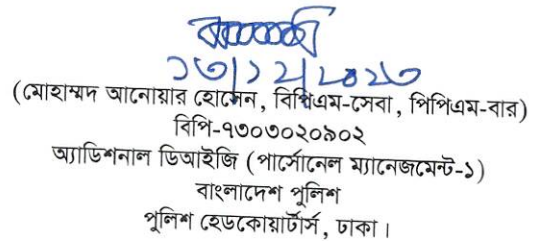 ১৩/১২/২০২৩
(মোহাম্মদ আনোয়ার হোসেন, বিপিএম-সেবা, পিপিএম-বার)
বিপি-৭৩০৩০২০৯০২
অ্যাডিশনাল ডিআইজি (পার্সোনেল ম্যানেজমেন্ট-১)
বাংলাদেশ পুলিশ
পুলিশ হেডকোয়ার্টার্স, ঢাকা।